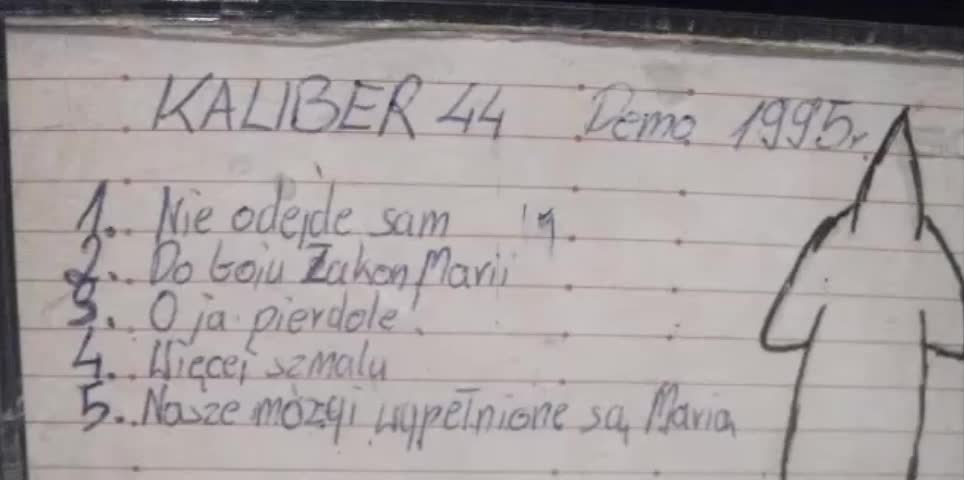 KALIBER 44 Demo 1995r.
1.. Nie odejde sam
2.. Do boju Zakon Marii
3.. O ja pierdole!
4.. Więcej szmalu
5.. Nasze mózgi wypełnione są Marią